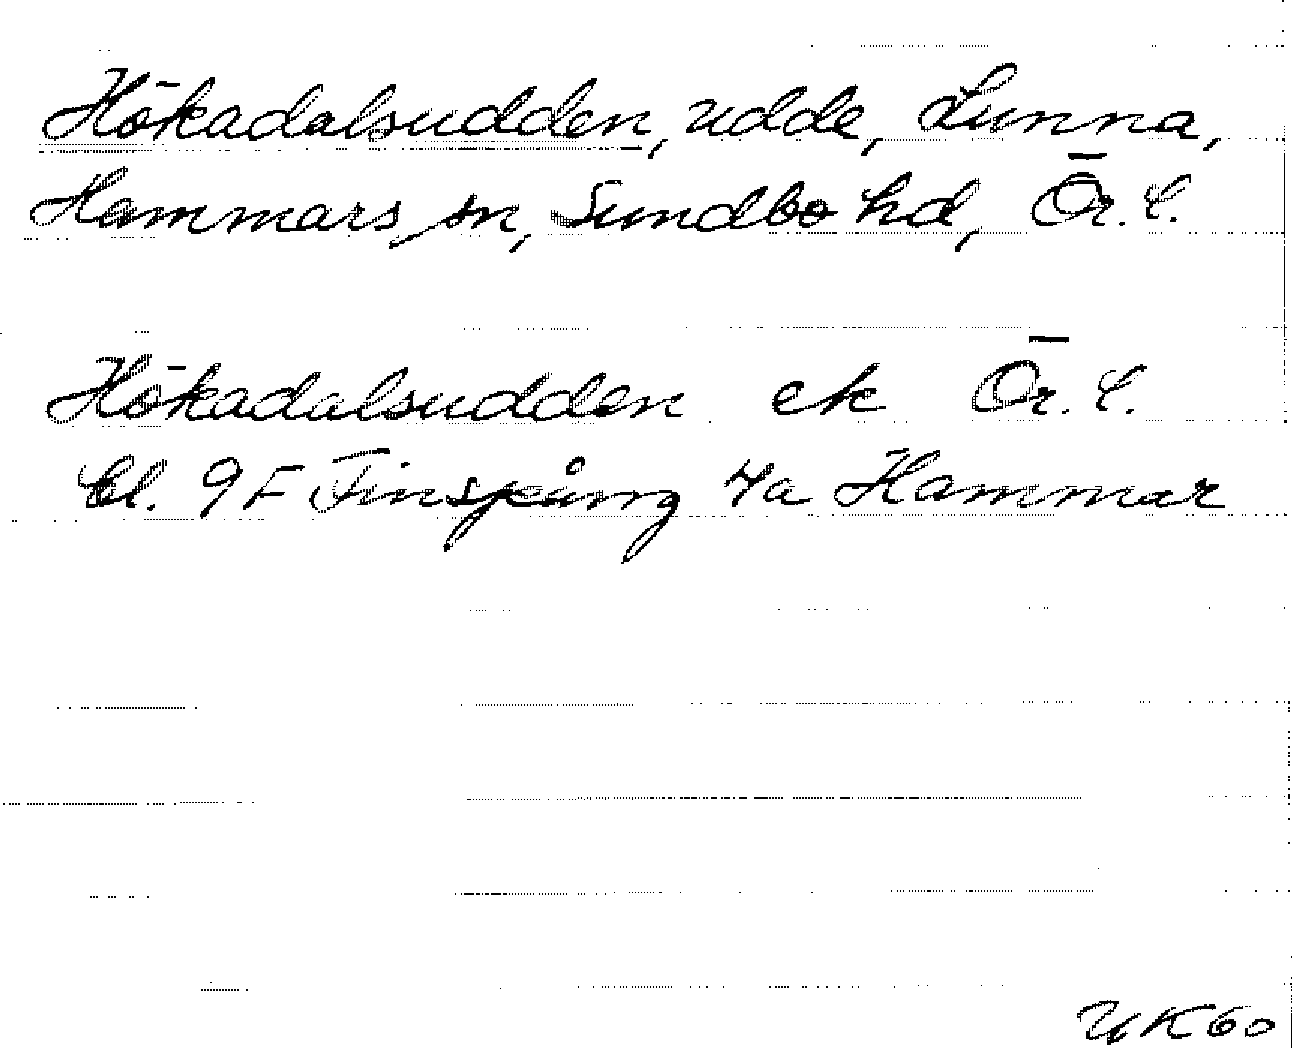 Hökadalsudden, udde, Lunna,
Hammars sn, Sundbo hd, Ör. l.
Hökadalsudden ek Ör. l.
bl. 9F Finspång 7a Hammar
UK60